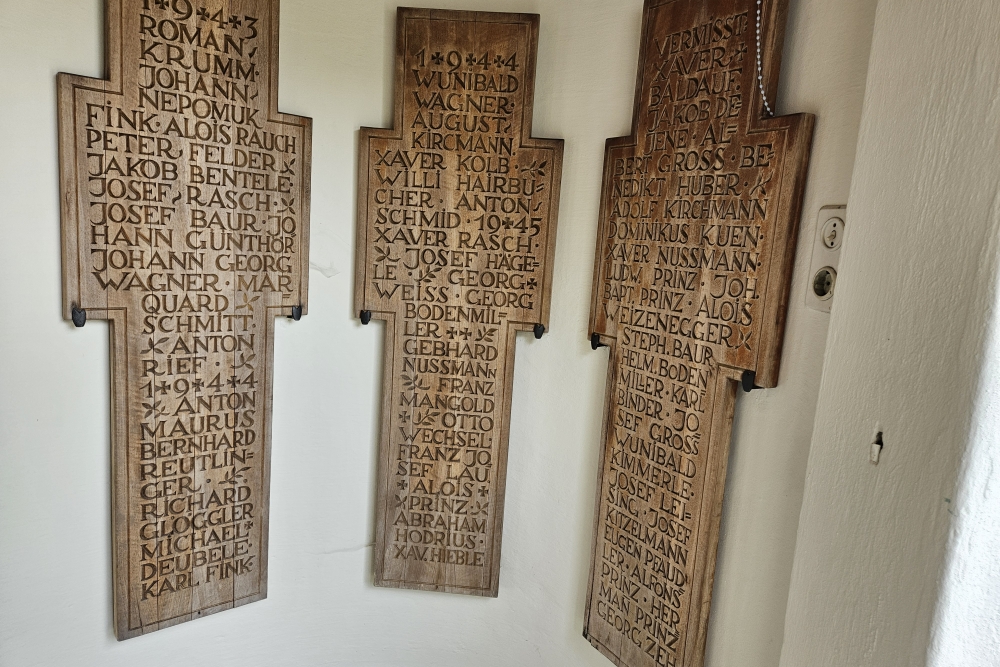 1943
ROMAN
KRUMM·
JOHANN
NEPOMUK
FINK·ALOIS RAUCH
PETER FELDER
JAKOB BENTELE·
JOSEF RASCH·
JOSEF BAUR·JO
HANN GÜNTHÖR
JOHANN GEORG
WAGNER·MAR
QUARD
SCHMITT·
ANTON
RIEF·
1944
ANTON
MAURUS
BERNHARD
REUTLIN=
GER·
RICHARD
GLOGGLER
MICHAEL
DEUBELE·
KARL FINK·
1944
WUNIBALD
WAGNER·
AUGUST
KIRCMANN·
XAVER KOLB·
WILLI HAIRBU=
CHER·ANTON
SCHMID·1945
XAVER RASCH·
JOSEF HÄGE=
LE·GEORG
WEISS·GEORG
BODENMIL=
LER
GEBHARD
NUSSMANN
FRANZ
MANGOLD
OTTO
WECHSEL·
FRANZ JO
SEF LAU
ALOIS
PRINZ·
ABRAHAM
HODRIUS·
XAV. HIEBLE
VERMISST:
XAVER
BALDAUF·
JAKOB DE=
JENE·AL=
BERT GROSS·BE=
NEDIKT HUBER·
ADOLF KIRCHMANN
DOMINIKUS KUEN·
XAVER NUSSMANN·
LUDW. PRINZ·JOH.
BAPT. PRINZ·ALOIS
WEIZENEGGER
STEPH. BAUR
HELM. BODEN
MILLER·KARL
BINDER·JO
SEF GROSS
WUNIBALD
KIMMERLE·
JOSEF LEI=
SING·JOSEF
KITZELMANN
EUGEN PFAUD
LER·ALFONS
PRINZ·HER
MAN PRINZ
GEORG ZEH